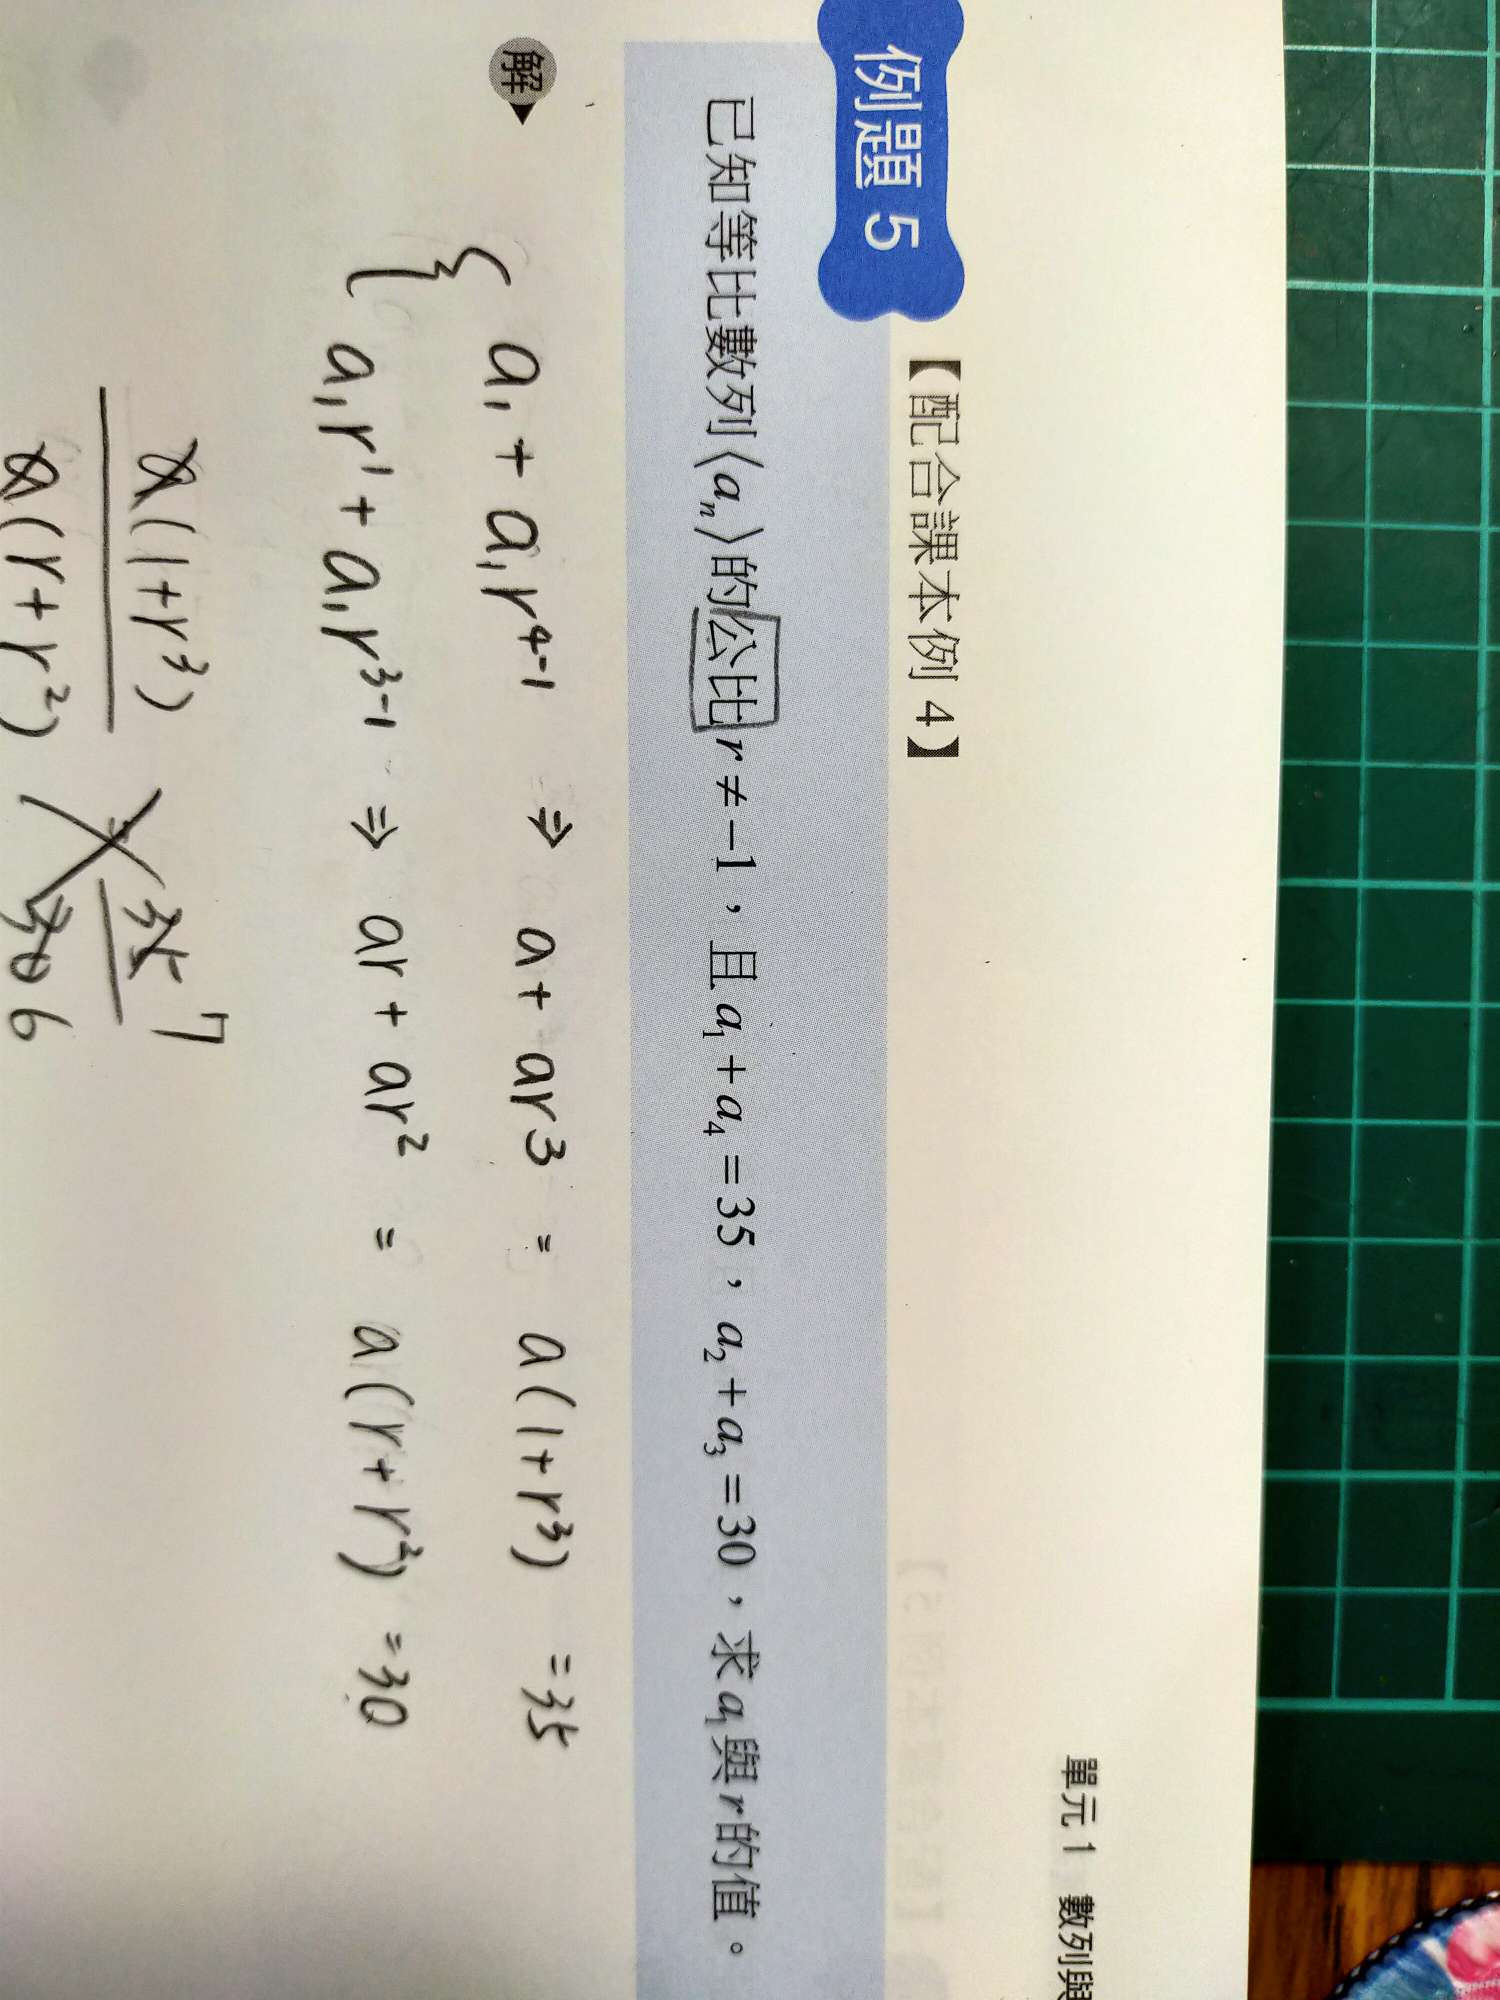 單元 1 數列與
例題 5 【配合課本例 4】
已知等比數列⟨aₙ⟩的公比 r ≠ −1，且 a₁ + a₄ = 35，a₂ + a₃ = 30，求 a₁ 與 r 的值。
解
{ a₁ + a₁r⁴⁻¹ ⇒ a + ar3 = a(1+r³) = 35
a₁r¹ + a₁r³⁻¹ ⇒ ar + ar² = a(r+r²) = 30
a(1+r³) 35 7
a(r+r²) 30 6